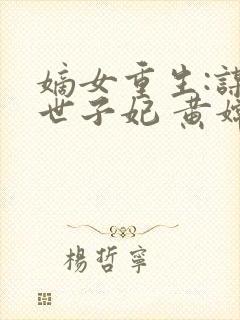 嫡女重生:謀
世子妃 黄
楊哲寧